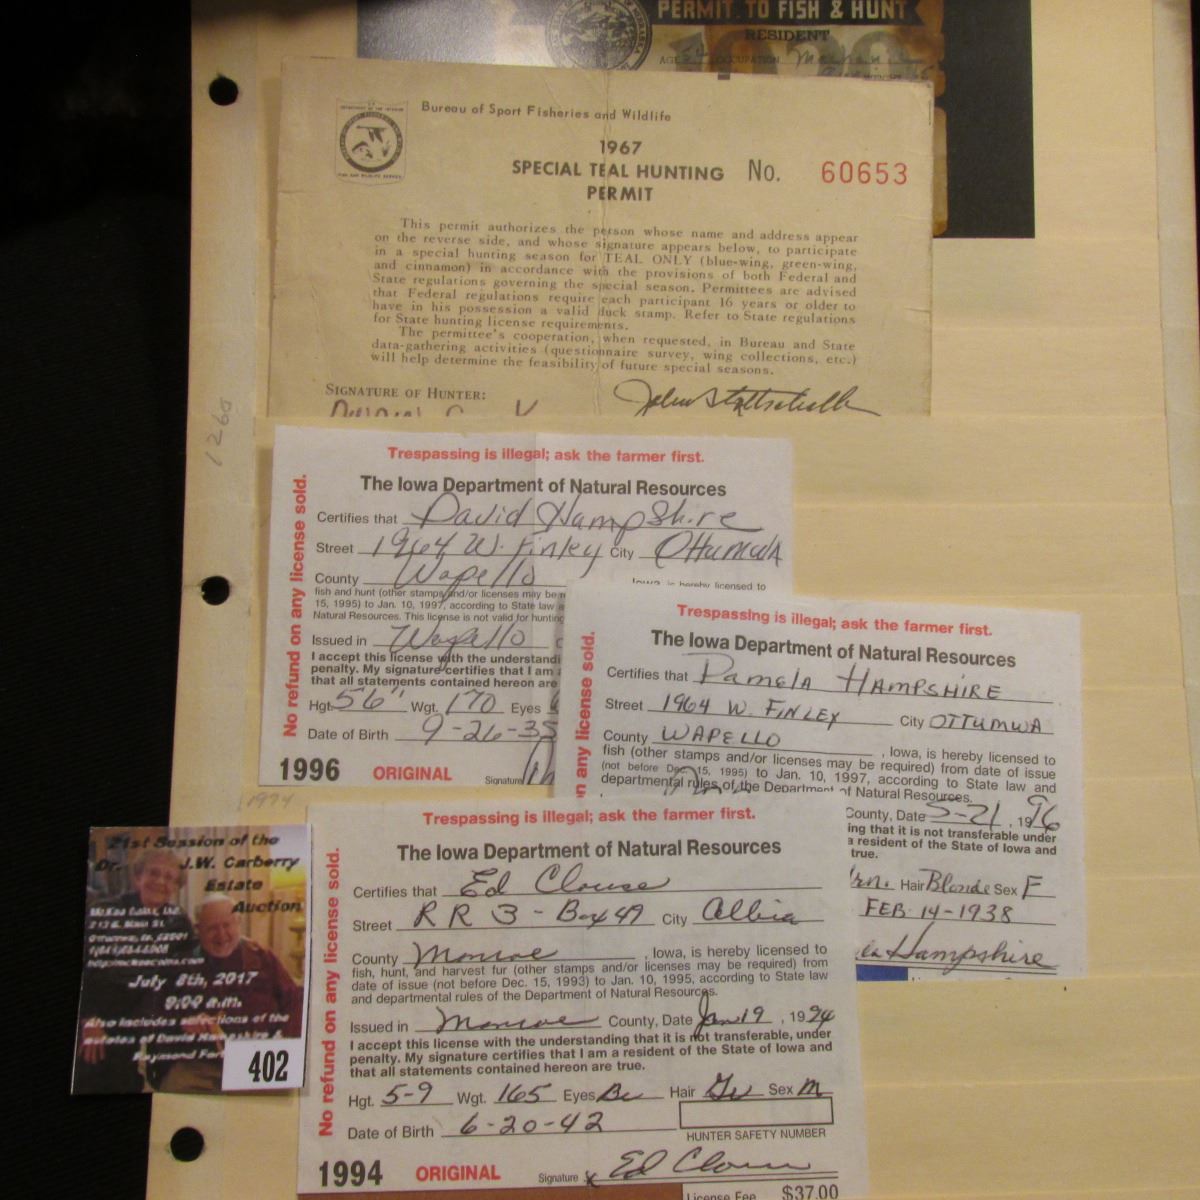 PERMIT TO FISH & HUNT
RESIDENT
AGE OCCUPATION
Bureau of Sport Fisheries and Wildlife
1967
SPECIAL TEAL HUNTING No. 60653
PERMIT
This permit authorizes the person whose name and address appear
on the reverse side, and whose signature appears below, to participate
in a special hunting season for TEAL ONLY (blue-wing, green-wing,
and cinnamon) in accordance with the provisions of both Federal and
State regulations governing the special season. Permittees are advised
that Federal regulations require each participant 16 years or older to
have in his possession a valid duck stamp. Refer to State regulations
for State hunting license requirements.
The permittee's cooperation, when requested, in Bureau and State
data-gathering activities (questionnaire survey, wing collections, etc.)
will help determine the feasibility of future special seasons.
SIGNATURE OF HUNTER:
1260
Trespassing is illegal; ask the farmer first.
No refund on any license sold.
The Iowa Department of Natural Resources
Certifies that David Hampshire
Street 1964 W. Finley City Ottumwa
County Wapello Iowa is hereby licensed to
fish and hunt (other stamps and/or licenses may be
15, 1995) to Jan. 10, 1997, according to State law
Natural Resources. This license is not valid for hunting
Issued in Wapello
I accept this license with the understandi
penalty. My signature certifies that I am
that all statements contained hereon are
Hgt. 5'6" Wgt. 170 Eyes
Date of Birth 9-26-35
1996 ORIGINAL Signature
Trespassing is illegal; ask the farmer first.
n any license sold.
The Iowa Department of Natural Resources
Certifies that Pamela HAMPSHIRE
Street 1964 W. FINLEY City OTTUMWA
County WAPELLO , Iowa, is hereby licensed to
fish (other stamps and/or licenses may be required) from date of issue
(not before Dec. 15, 1995) to Jan. 10, 1997, according to State law and
departmental rules of the Department of Natural Resources.
County, Date 5-21, 1996
ing that it is not transferable under
a resident of the State of Iowa and
true.
Hair Blonde Sex F
FEB-14-1938
Hampshire
1974
Trespassing is illegal; ask the farmer first.
No refund on any license sold.
The Iowa Department of Natural Resources
Certifies that Ed Clouse
Street RR 3 - Box 49 City Albia
County Monroe , Iowa, is hereby licensed to
fish, hunt, and harvest fur (other stamps and/or licenses may be required) from
date of issue (not before Dec. 15, 1993) to Jan. 10, 1995, according to State law
and departmental rules of the Department of Natural Resources.
Issued in Monroe County, Date Jan 19, 1994
I accept this license with the understanding that it is not transferable, under
penalty. My signature certifies that I am a resident of the State of Iowa and
that all statements contained hereon are true.
Hgt. 5-9 Wgt. 165 Eyes Br Hair Sex M
Date of Birth 6-20-42
HUNTER SAFETY NUMBER
1994 ORIGINAL Signature x Ed Clouse
License Fee $37.00
21st Session of the
Dr. J.W. Carberry
Estate
Auction
July 8th, 2017
9:00 a.m.
Also includes selections of the
estates of David Hampshire &
Raymond
402